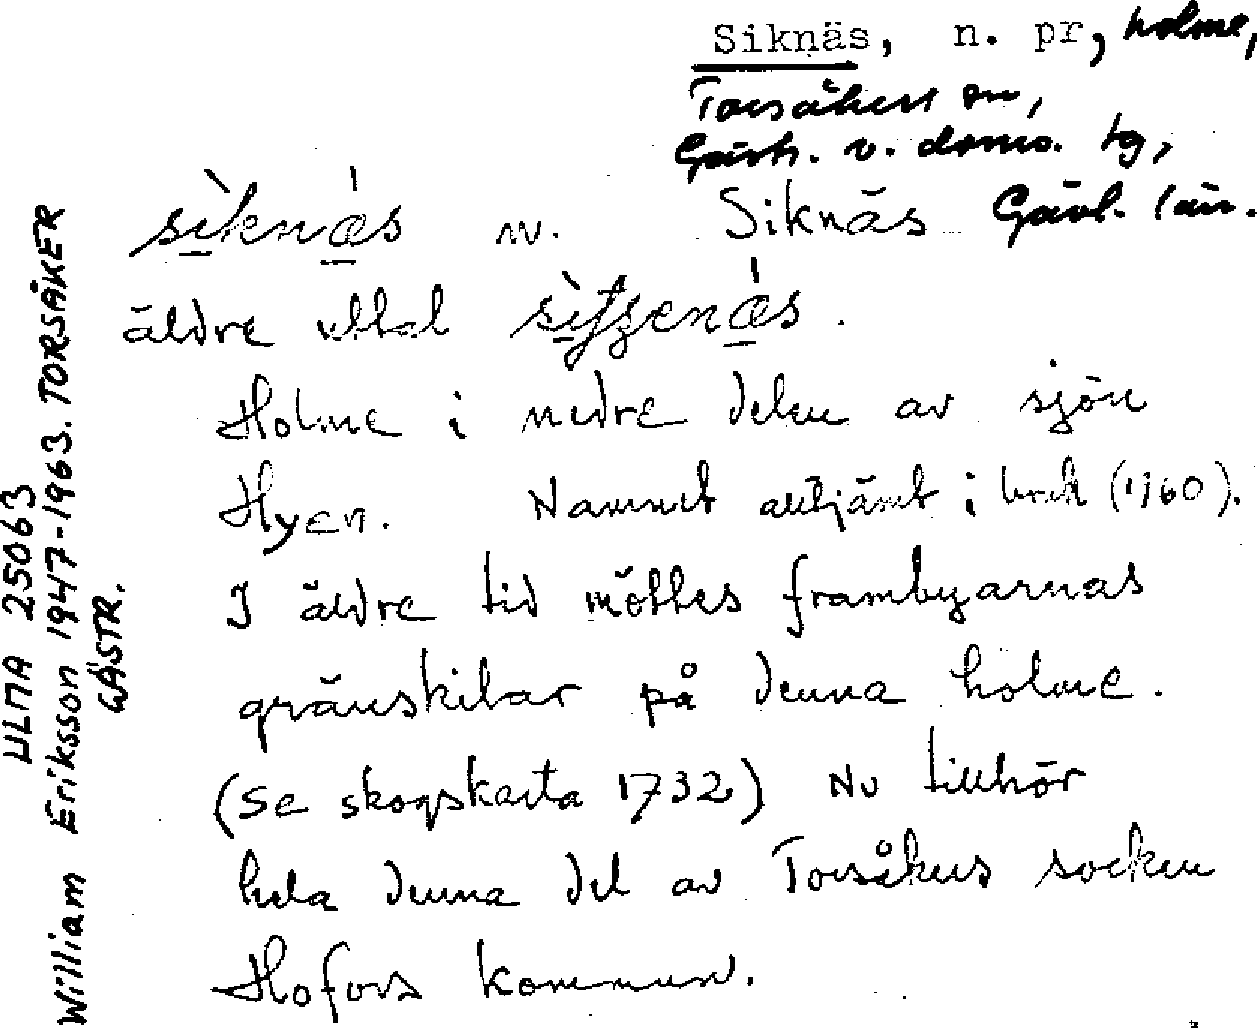 Siknäs, n. pr, holme,
Torsåkers sn,
Gästr. v. doms. tg,
Gävl. län.
siknäs n. Siknäs
äldre uttal
Holme i nedre delen av sjön
Hyen. Namnet alltjämt i bruk (1960).
I äldre tid möttes frambyarnas
gränskilar på denna holme.
(Se skogskarta 1732) Nu tillhör
hela denna del av Torsåkers socken
Hofors kommun.
ULMA 25063
William Eriksson 1947-1963. TORSÅKER
GÄSTR.